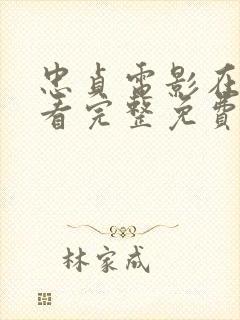 忠贞电影在
看完整免费
林家成